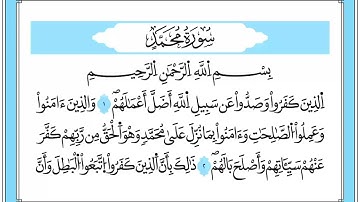 سُورَةُ مُحَمَّدٍ
بِسْمِ ٱللَّهِ ٱلرَّحْمَٰنِ ٱلرَّحِيمِ
ٱلَّذِينَ كَفَرُوا۟ وَصَدُّوا۟ عَن سَبِيلِ ٱللَّهِ أَضَلَّ أَعْمَٰلَهُمْ ١ وَٱلَّذِينَ ءَامَنُوا۟
وَعَمِلُوا۟ ٱلصَّٰلِحَٰتِ وَءَامَنُوا۟ بِمَا نُزِّلَ عَلَىٰ مُحَمَّدٍ وَهُوَ ٱلْحَقُّ مِن رَّبِّهِمْ كَفَّرَ
عَنْهُمْ سَيِّـَٔاتِهِمْ وَأَصْلَحَ بَالَهُمْ ٢ ذَٰلِكَ بِأَنَّ ٱلَّذِينَ كَفَرُوا۟ ٱتَّبَعُوا۟ ٱلْبَٰطِلَ وَأَنَّ